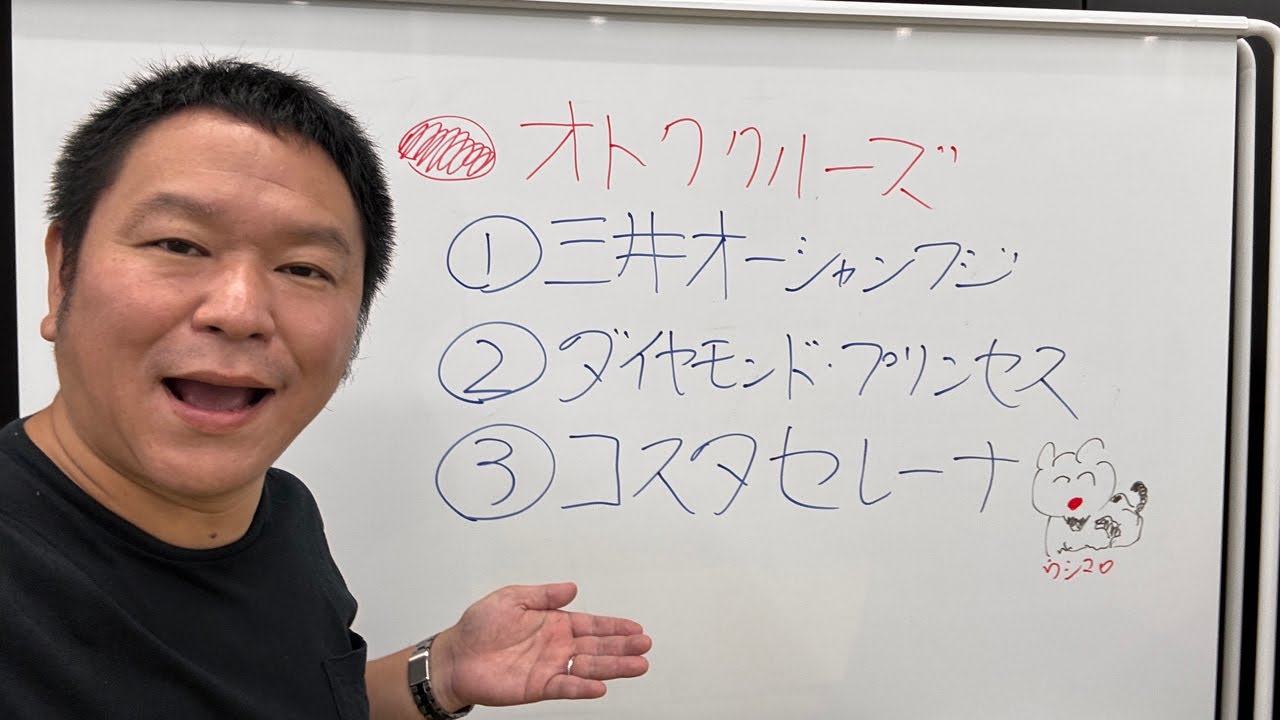 オトククルーズ
①三井オーシャンフジ
②ダイヤモンド・プリンセス
③コスタセレーナ